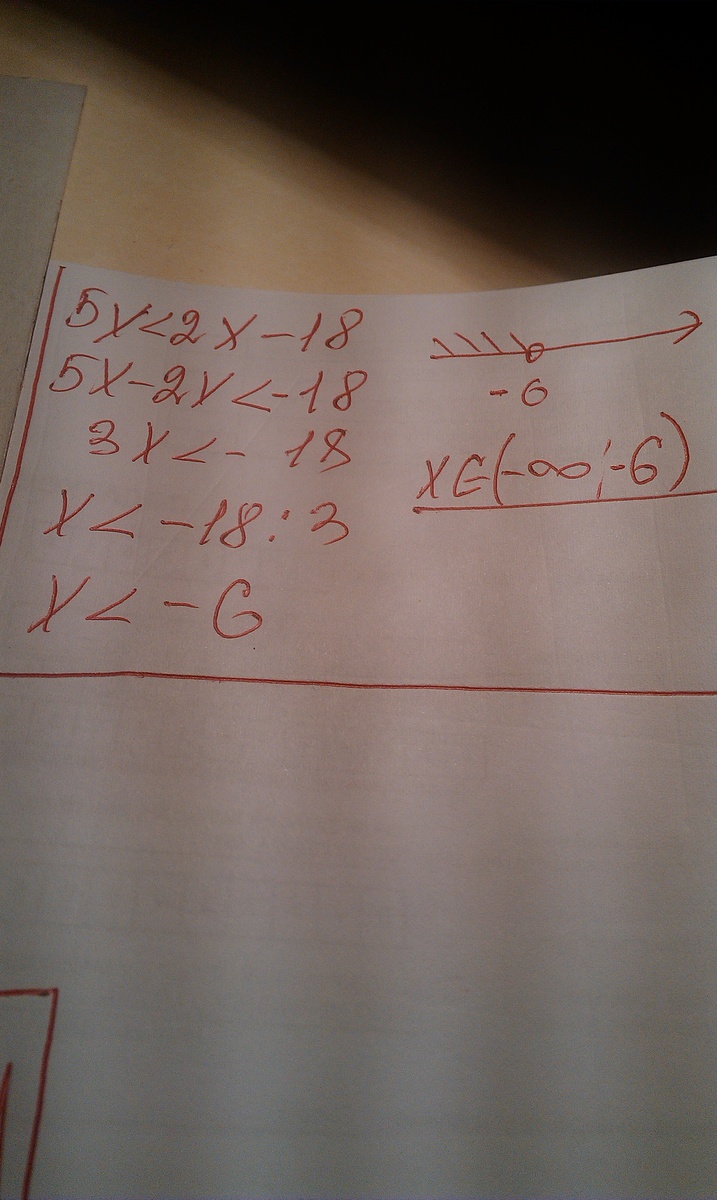 5x<2x-18
5x-2x<-18
3x<-18
x<-18:3
x<-6
-6
x∈(-∞;-6)